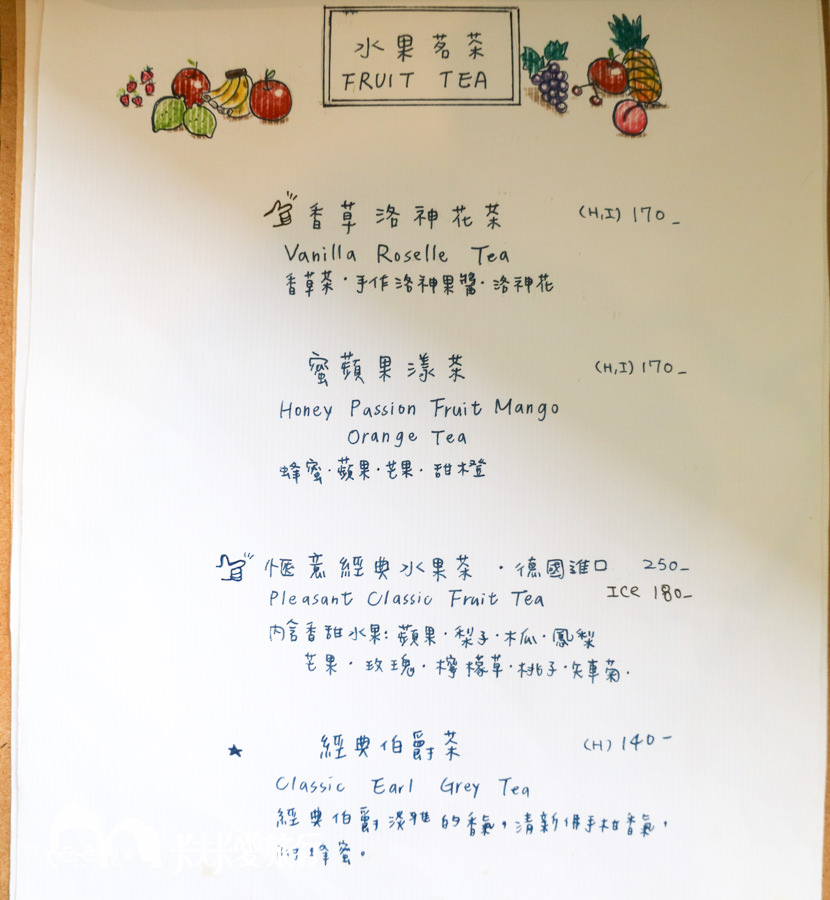 水果茗茶
FRUIT TEA
香草洛神花茶 (H,I) 170_
Vanilla Roselle Tea
香草茶·手作洛神果醬·洛神花
蜜蘋果漾茶 (H,I) 170_
Honey Passion Fruit Mango
Orange Tea
蜂蜜·蘋果·芒果·甜橙
愜意經典水果茶 ·德國進口 250_
Pleasant Classic Fruit Tea ICE 180_
內含香甜水果:蘋果·梨子·木瓜·鳳梨
芒果·玫瑰·檸檬草·桃子·矢車菊·
★ 經典伯爵茶 (H) 140-
Classic Earl Grey Tea
經典伯爵淡雅的香氣,清新佛手柑香氣,
蜂蜜。